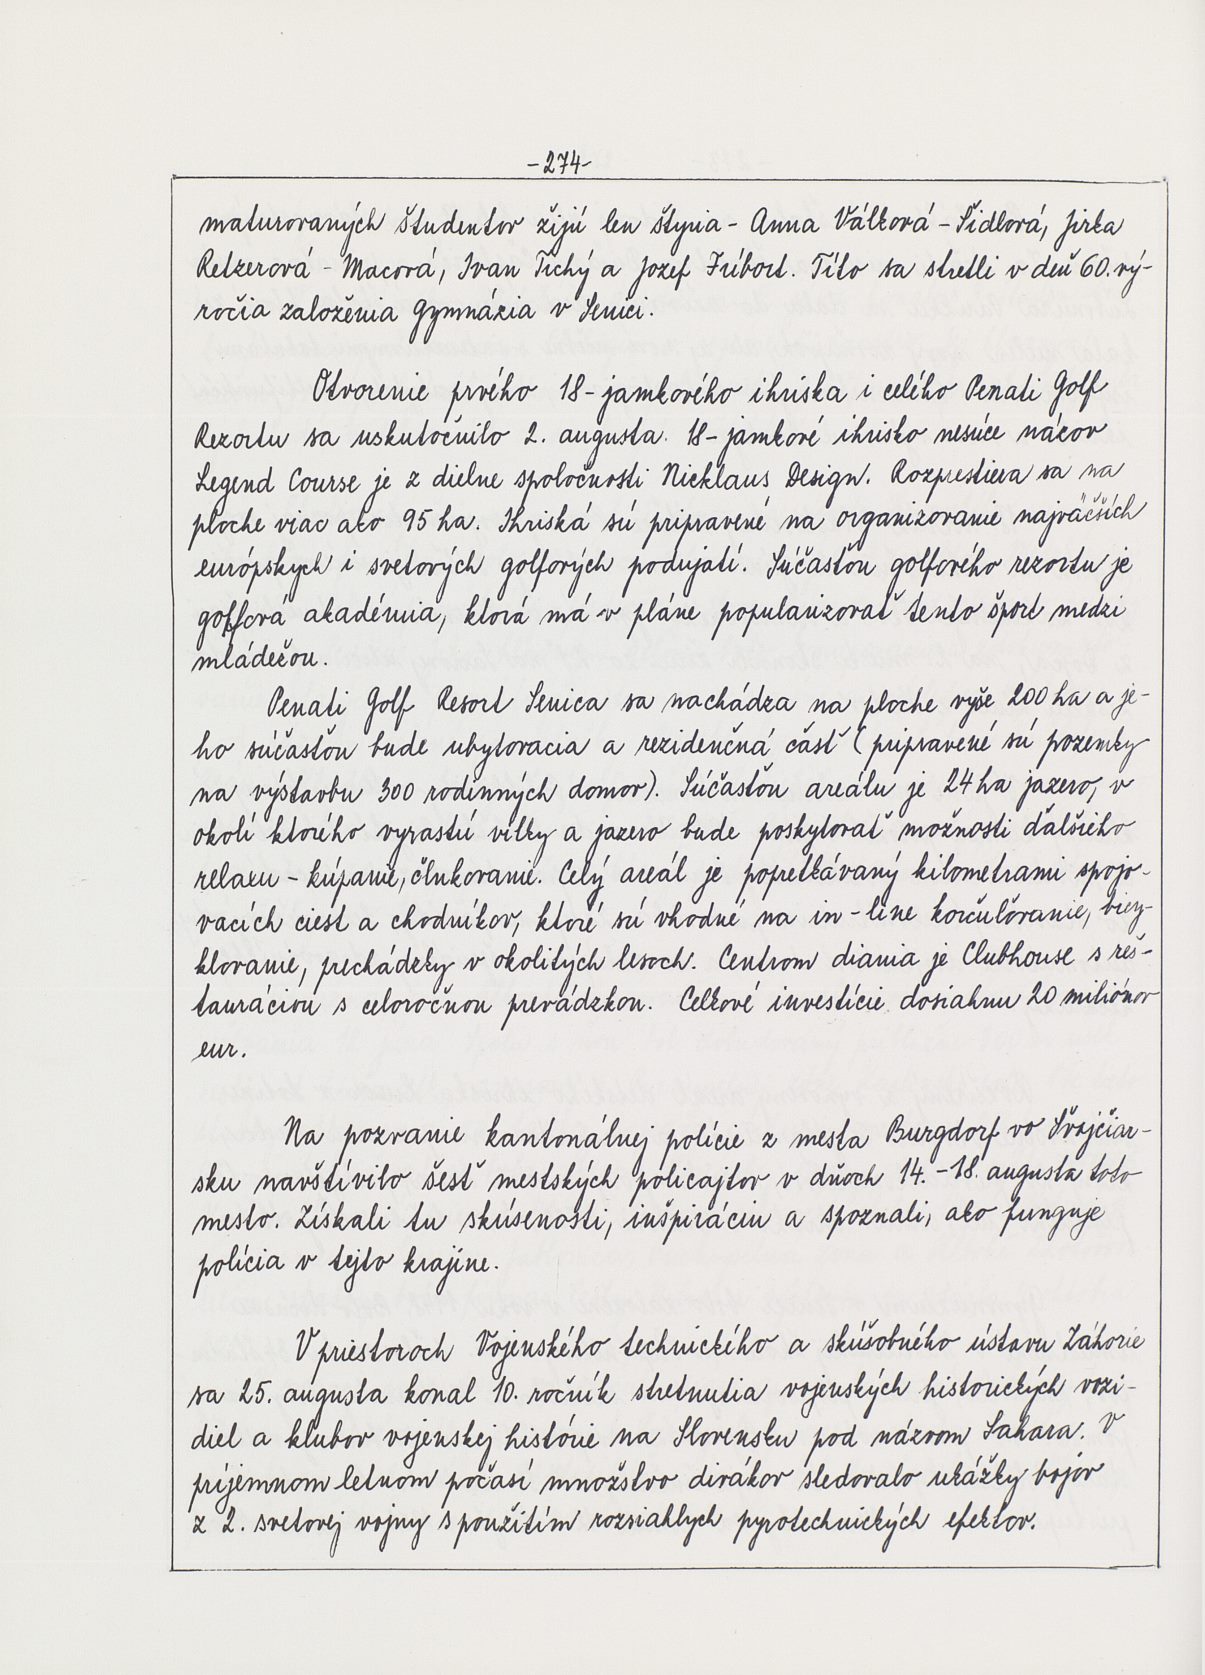 -274-
maturovaných študentov žijú len štyria - Anna Válková - Šidlová, Jirka
Retzerová - Macová, Ivan Tichý a Jozef Fribort. Títo sa stretli v deň 60. vý-
ročia založenia Gymnázia v Senici.
Otvorenie prvého 18-jamkového ihriska i celého Penati Golf
Rezortu sa uskutočnilo 2. augusta. 18-jamkové ihrisko nesúce názov
Legend Course je z dielne spoločnosti Nicklaus Design. Rozprestiera sa na
ploche viac ako 95 ha. Ihriská sú pripravené na organizovanie najväčších
európskych i svetových golfových podujatí. Súčasťou golfového rezortu je
golfová akadémia, ktorá má v pláne popularizovať tento šport medzi
mládežou.
Penati Golf Resort Senica sa nachádza na ploche vyše 200 ha a je-
ho súčasťou bude ubytovacia a rezidenčná časť (pripravené sú pozemky
na výstavbu 300 rodinných domov). Súčasťou areálu je 24 ha jazero, v
okolí ktorého vyrastú vilky a jazero bude poskytovať možnosti ďalšieho
relaxu - kúpanie, člnkovanie. Celý areál je popretkávaný kilometrami spojo-
vacích ciest a chodníkov, ktoré sú vhodné na in-line korčuľovanie, bicy-
klovanie, prechádzky v okolitých lesoch. Centrom diania je Clubhouse s reš-
tauráciou s celoročnou prevádzkou. Celkové investície dosiahnu 20 miliónov
eur.
Na pozvanie kantonálnej polície z mesta Burgdorf vo Švajčiar-
sku navštívilo šesť mestských policajtov v dňoch 14. - 18. augusta toto
mesto. Získali tu skúsenosti, inšpiráciu a spoznali, ako funguje
polícia v tejto krajine.
V priestoroch Vojenského technického a skúšobného ústavu Záhorie
sa 25. augusta konal 10. ročník stretnutia vojenských historických vozi-
diel a klubov vojenskej histórie na Slovensku pod názvom Sahara. V
príjemnom letnom počasí množstvo divákov sledovalo ukážky bojov
z 2. svetovej vojny s použitím rozsiahlych pyrotechnických efektov.